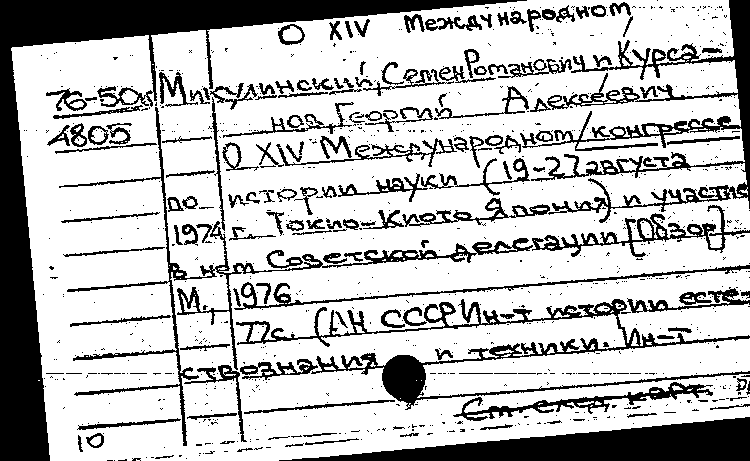 О XIV Международном
76-50к Микулинский, Семен Романович и Курса-
4805 нов, Георгий Алексеевич
О XIV Международном / конгрессе
по истории науки (19-27 августа
1974 г. Токио-Киото, Япония) и участие
в нем Советской делегации. [Обзор]
М., 1976.
77с. (АН СССР Ин-т истории есте-
ствознания и техники. Ин-т
См. след. карт.
10